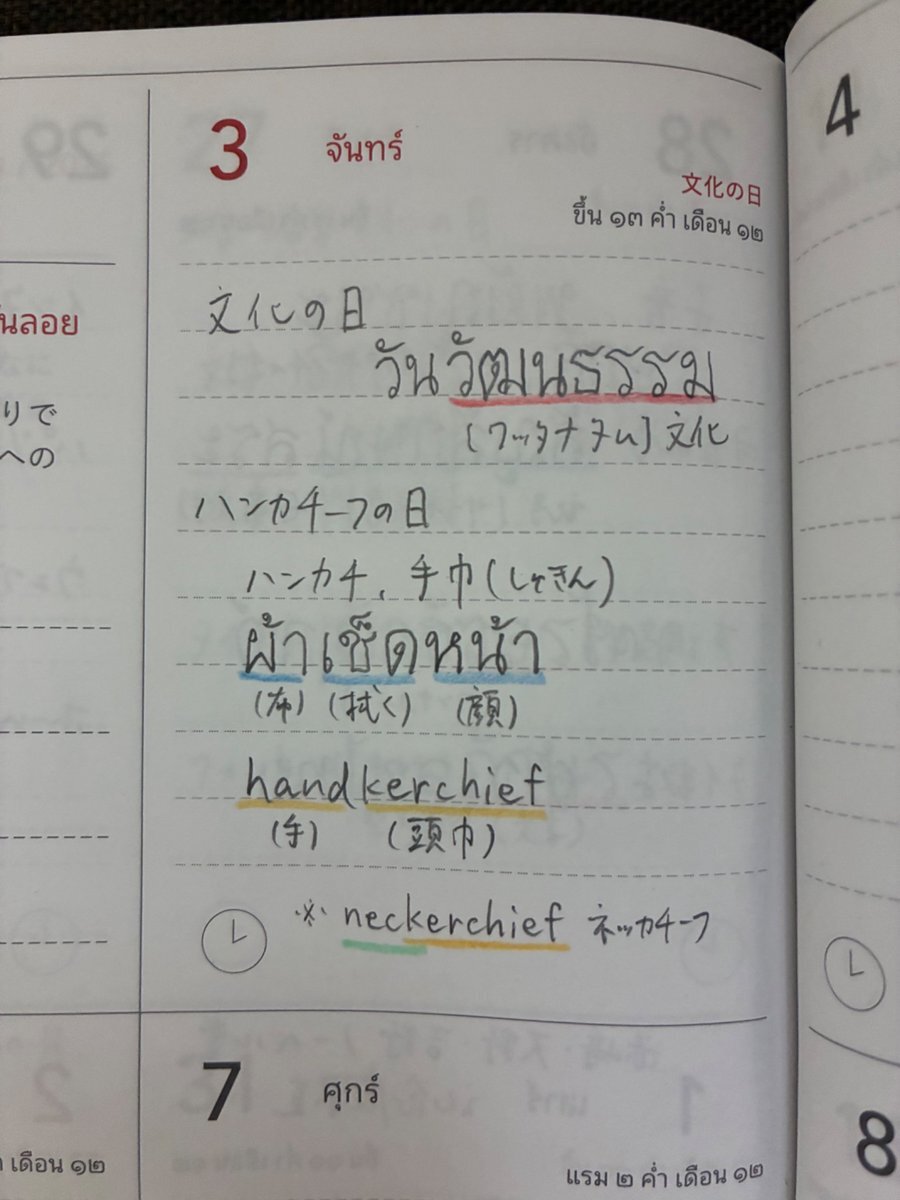 29
นลอย
りで
への
เดือน ๑๒
3 จันทร์
文化の日
ขึ้น ๑๓ ค่ำ เดือน ๑๒
文化の日
วันวัฒนธรรม
(ワッタナタム) 文化
ハンカチーフの日
ハンカチ、手巾(しゅきん)
ผ้าเช็ดหน้า
(布) (拭く) (顔)
handkerchief
(手) (頭巾)
※ neckerchief ネッカチーフ
7 ศุกร์
แรม ๒ ค่ำ เดือน ๑๒
4
8